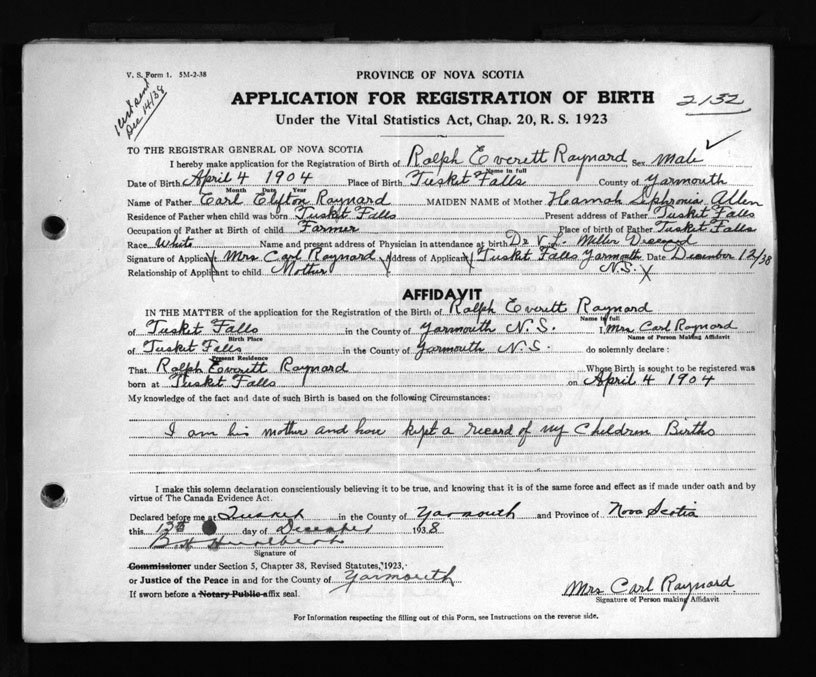 V. S. Form 1. 5M-2-38
PROVINCE OF NOVA SCOTIA
Dec 14/38
APPLICATION FOR REGISTRATION OF BIRTH
2132
Under the Vital Statistics Act, Chap. 20, R. S. 1923
TO THE REGISTRAR GENERAL OF NOVA SCOTIA
I hereby make application for the Registration of Birth of Ralph Everett Raynard Sex Male
Name in full
Date of Birth April 4 1904 Place of Birth Tusket Falls County of Yarmouth
Month Date Year
Name of Father Carl Clifton Raynard MAIDEN NAME of Mother Hannah Sephronia Allen
Residence of Father when child was born Tusket Falls Present address of Father Tusket Falls
Occupation of Father at Birth of child Farmer Place of birth of Father Tusket Falls
Race White Name and present address of Physician in attendance at birth Dr V. L. Miller Deceased
Signature of Applicant X Mrs Carl Raynard X Address of Applicant X Tusket Falls Yarmouth Date December 12/38
Relationship of Applicant to child Mother N.S. X
AFFIDAVIT
IN THE MATTER of the application for the Registration of the Birth of Ralph Everett Raynard
Name in full
of Tusket Falls in the County of Yarmouth N.S. I Mrs Carl Raynard
Birth Place Name of Person Making Affidavit
of Tusket Falls in the County of Yarmouth N.S. do solemnly declare:
Present Residence
That Ralph Everett Raynard Whose Birth is sought to be registered was
born at Tusket Falls on April 4 1904
My knowledge of the fact and date of such Birth is based on the following Circumstances:
I am his mother and have kept a record of my Children Births
I make this solemn declaration conscientiously believing it to be true, and knowing that it is of the same force and effect as if made under oath and by
virtue of The Canada Evidence Act.
Declared before me at Tusket in the County of Yarmouth and Province of Nova Scotia
this 12th day of December 1938
Signature of
Commissioner under Section 5, Chapter 38, Revised Statutes, 1923,
or Justice of the Peace in and for the County of Yarmouth
If sworn before a Notary Public affix seal.
Mrs Carl Raynard.
Signature of Person making Affidavit
For Information respecting the filling out of this Form, see Instructions on the reverse side.